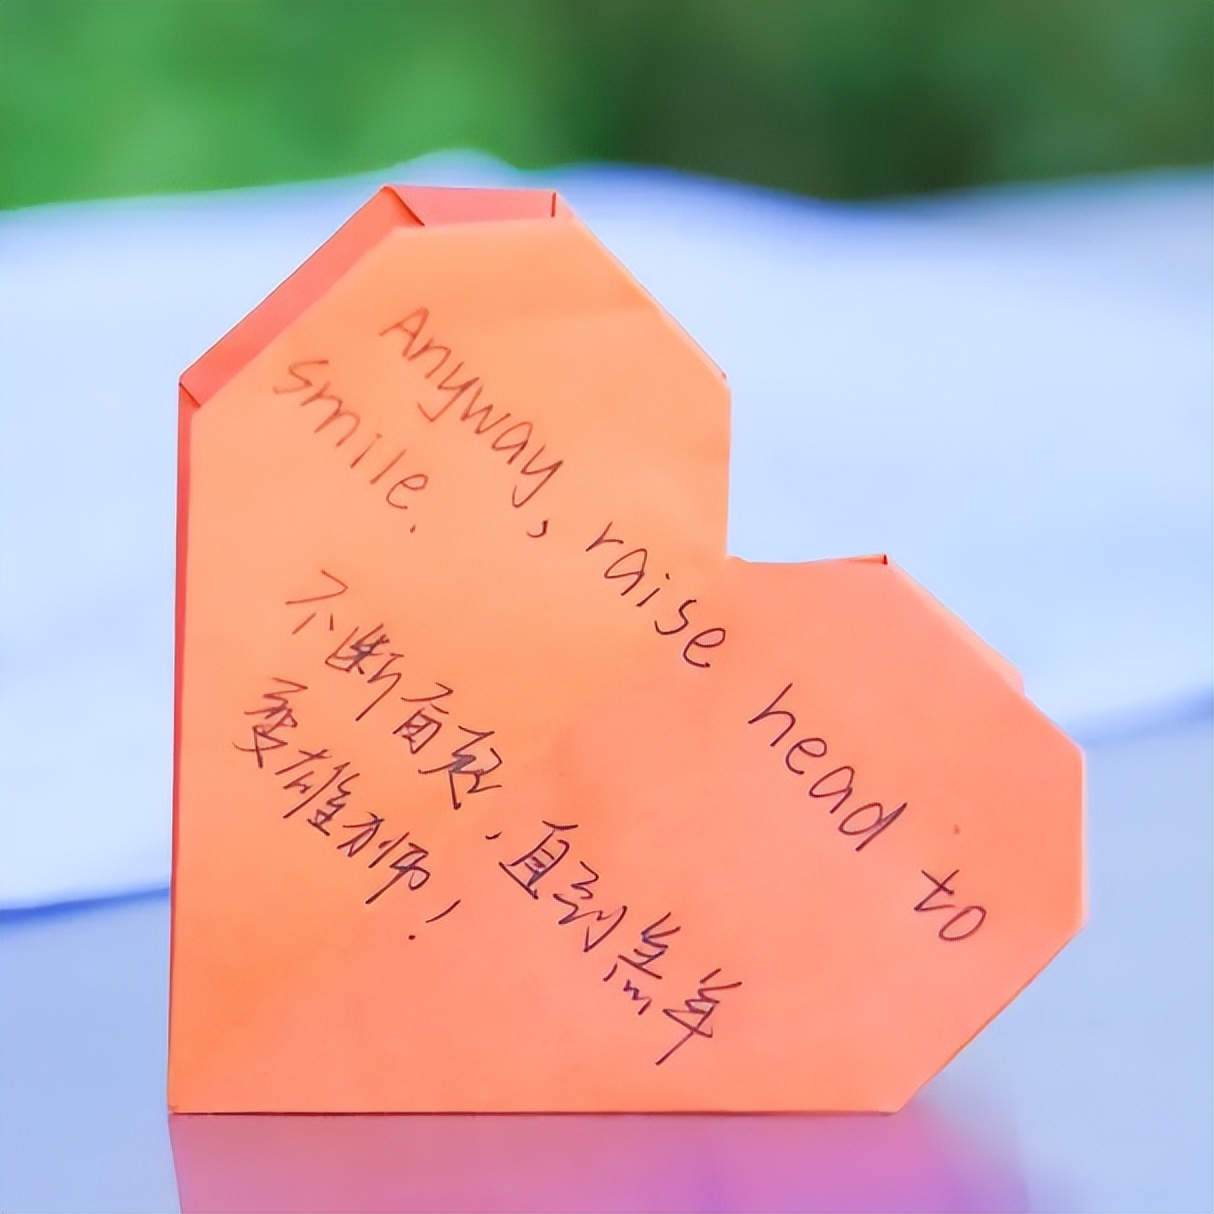 Anyway, raise head to
smile.
不断奋起，直到羔羊
变雄狮！